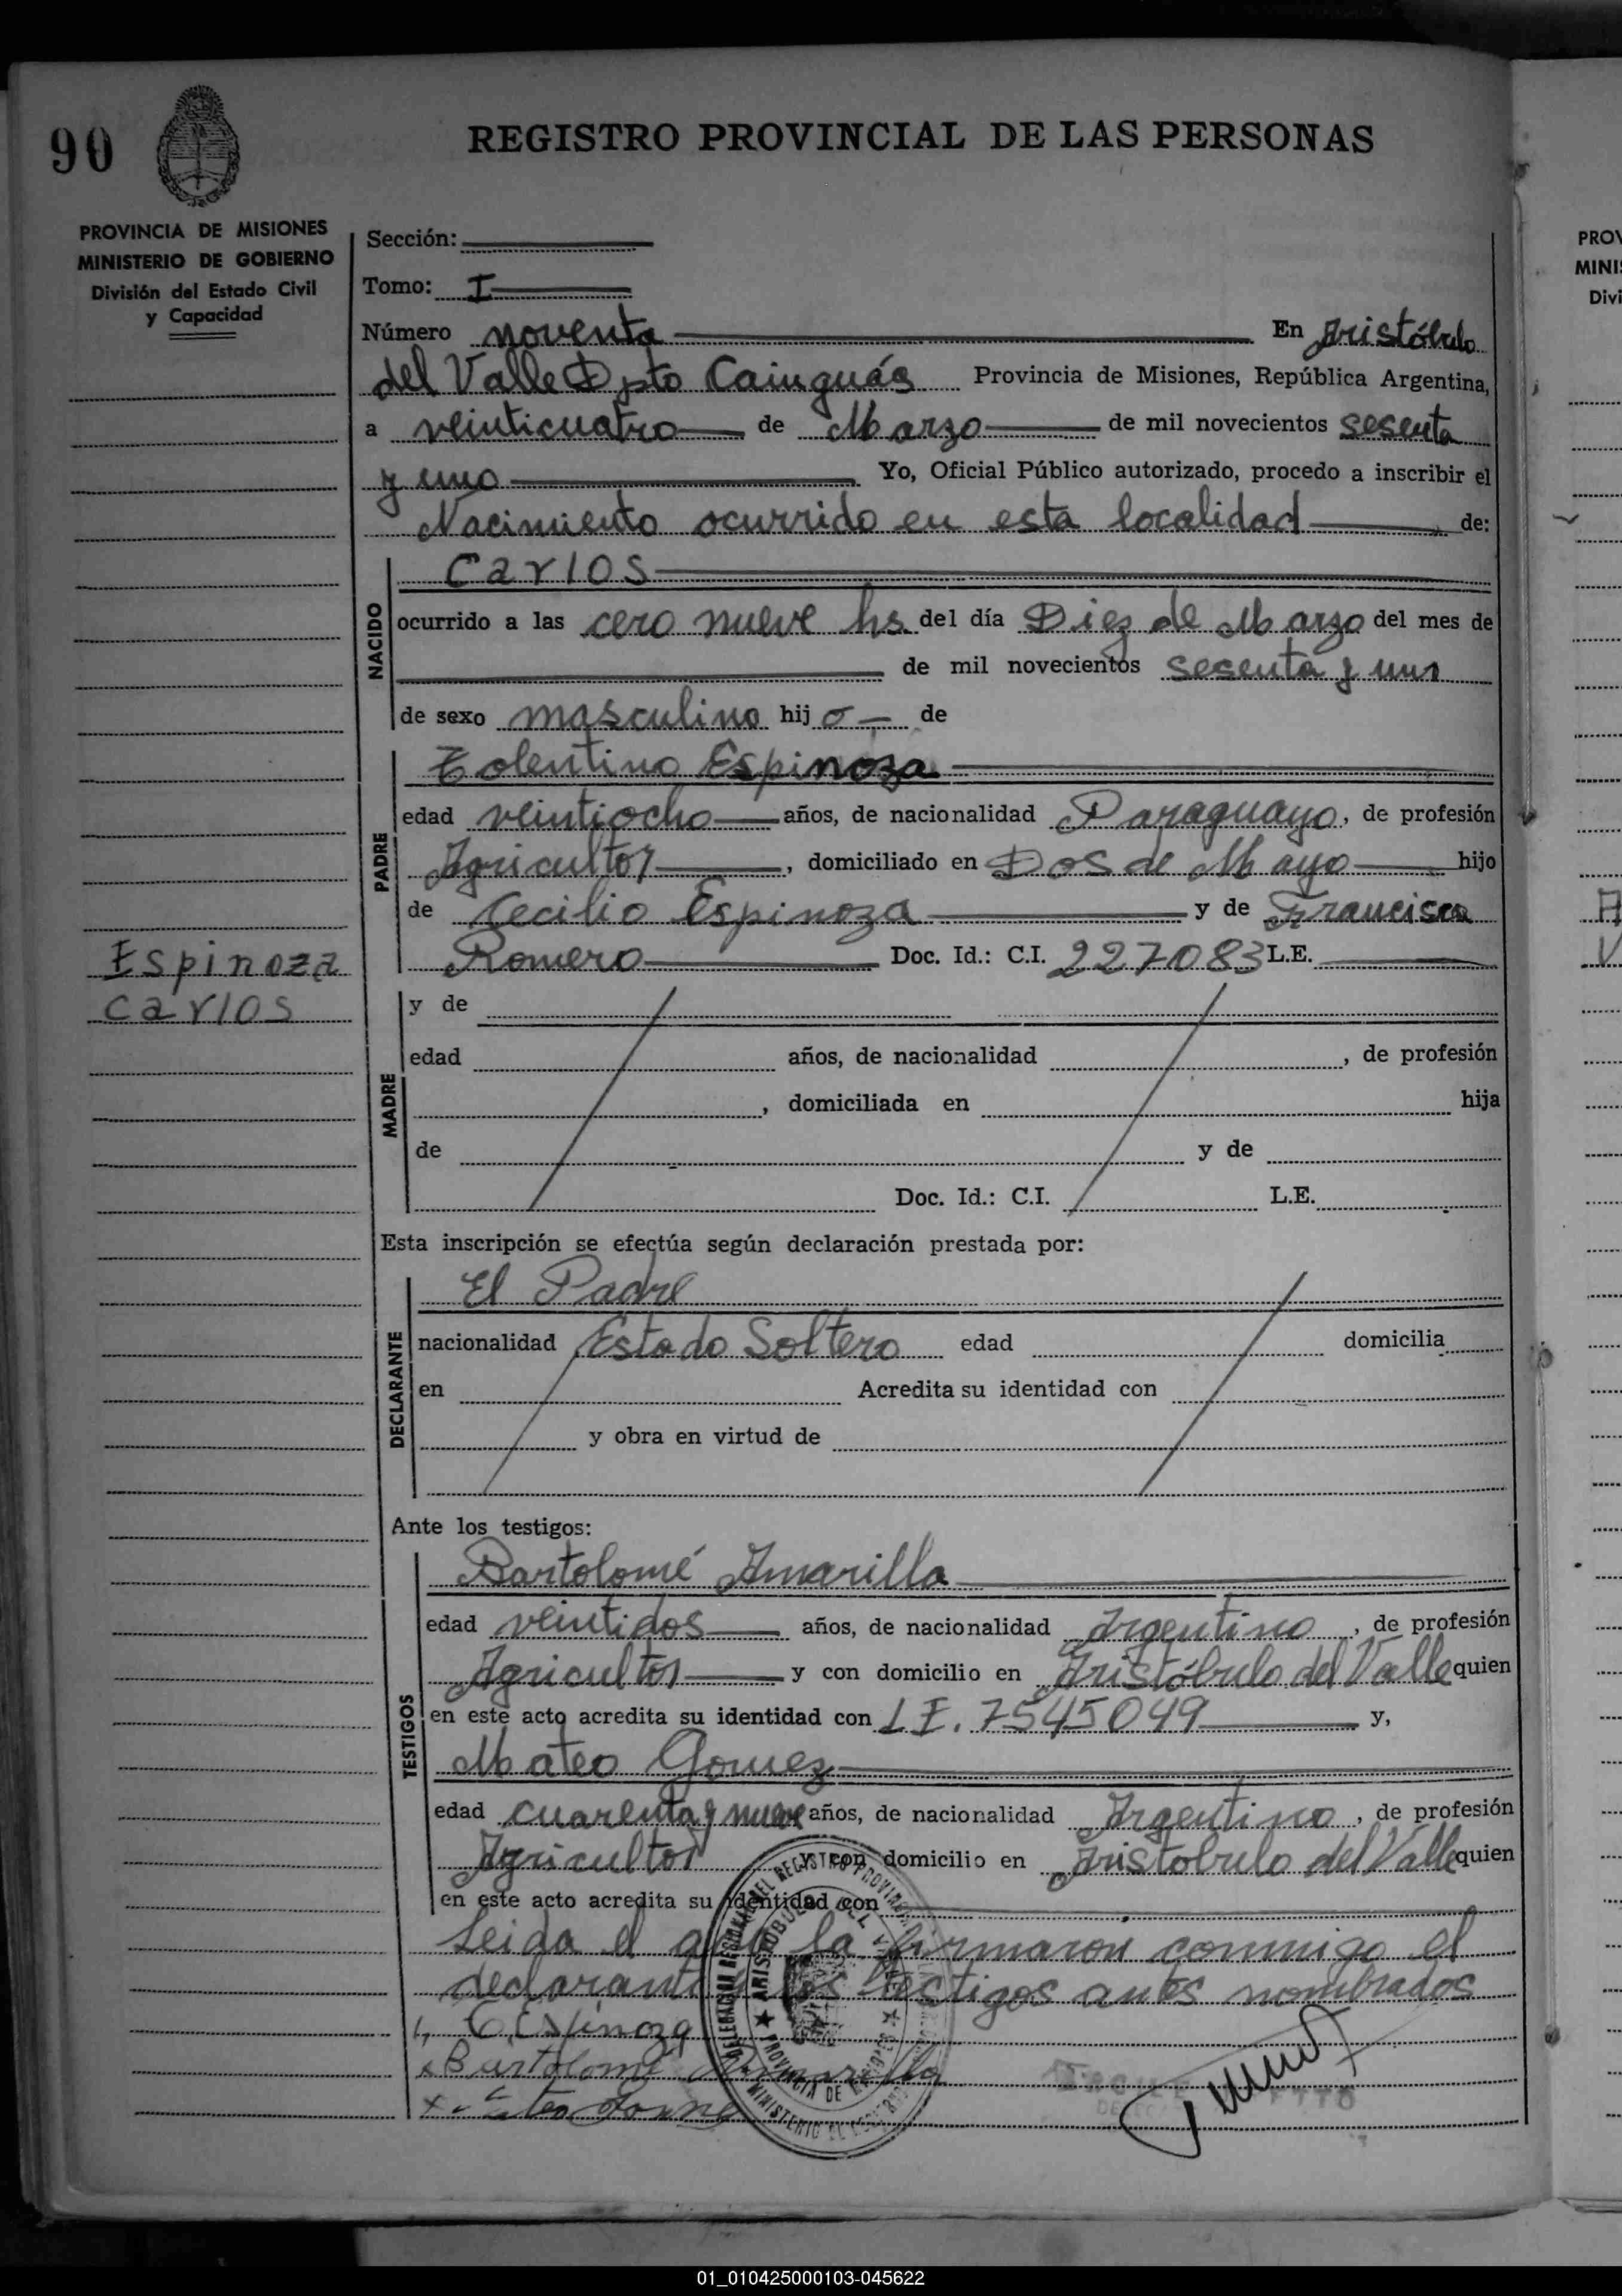 90
REGISTRO PROVINCIAL DE LAS PERSONAS
PROVINCIA DE MISIONES
MINISTERIO DE GOBIERNO
División del Estado Civil
y Capacidad
Sección:
Tomo: I
Número noventa En Aristóbulo
del Valle Dpto Cainguás Provincia de Misiones, República Argentina,
a veinticuatro de Marzo de mil novecientos sesenta
y uno Yo, Oficial Público autorizado, procedo a inscribir el
Nacimiento ocurrido en esta localidad de:
NACIDO
Carlos
ocurrido a las cero nueve hs. del día Diez de Marzo del mes de
de mil novecientos sesenta y uno
de sexo masculino hijo de
PADRE
Tolentino Espinoza
edad veintiocho años, de nacionalidad Paraguayo, de profesión
Agricultor, domiciliado en Dos de Mayo hijo
de Cecilio Espinoza y de Francisca
Romero Doc. Id.: C.I. 227083 L.E.
Espinoza
Carlos
MADRE
y de
edad años, de nacionalidad , de profesión
, domiciliada en hija
de y de
Doc. Id.: C.I. L.E.
Esta inscripción se efectúa según declaración prestada por:
DECLARANTE
El Padre
nacionalidad Estado Soltero edad domicilia
en Acredita su identidad con
y obra en virtud de
Ante los testigos:
TESTIGOS
Bartolomé Amarilla
edad veintidos años, de nacionalidad Argentino, de profesión
Agricultor y con domicilio en Aristóbulo del Valle quien
en este acto acredita su identidad con L.E. 7545049 y,
Mateo Gomez
edad cuarenta y nueve años, de nacionalidad Argentino, de profesión
Agricultor y con domicilio en Aristobulo del Valle quien
en este acto acredita su identidad con
Leida el la firmaron conmigo el
declarante los testigos antes nombrados
Espinoza
Bartolomé Amarilla
PROV
MINIS
Divi
01_010425000103-045622